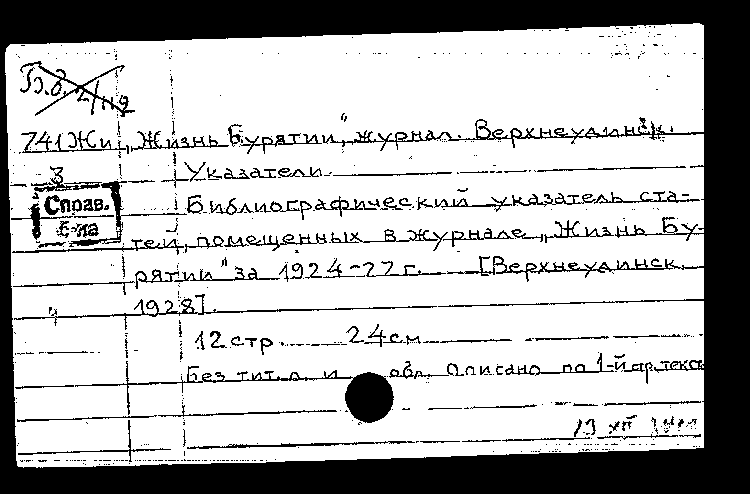 741Жи „Жизнь Бурятии", журнал. Верхнеудинск.
3 Указатели.
Справ. Библиографический указатель ста-
б-ка тей, помещенных в журнале „Жизнь Бу-
рятии" за 1924-27 г. [Верхнеудинск,
1928].
12 стр. 24 см
Без тит. л. и обл. Описано по 1-й стр. текста
13 XII